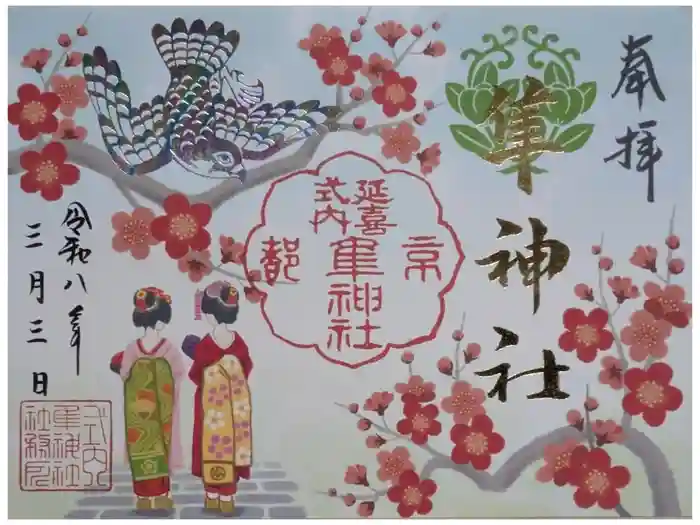 奉拝
隼神社
延喜
式内
隼神社
京
都
令和八年
三月三日
式内
隼神社
社務所